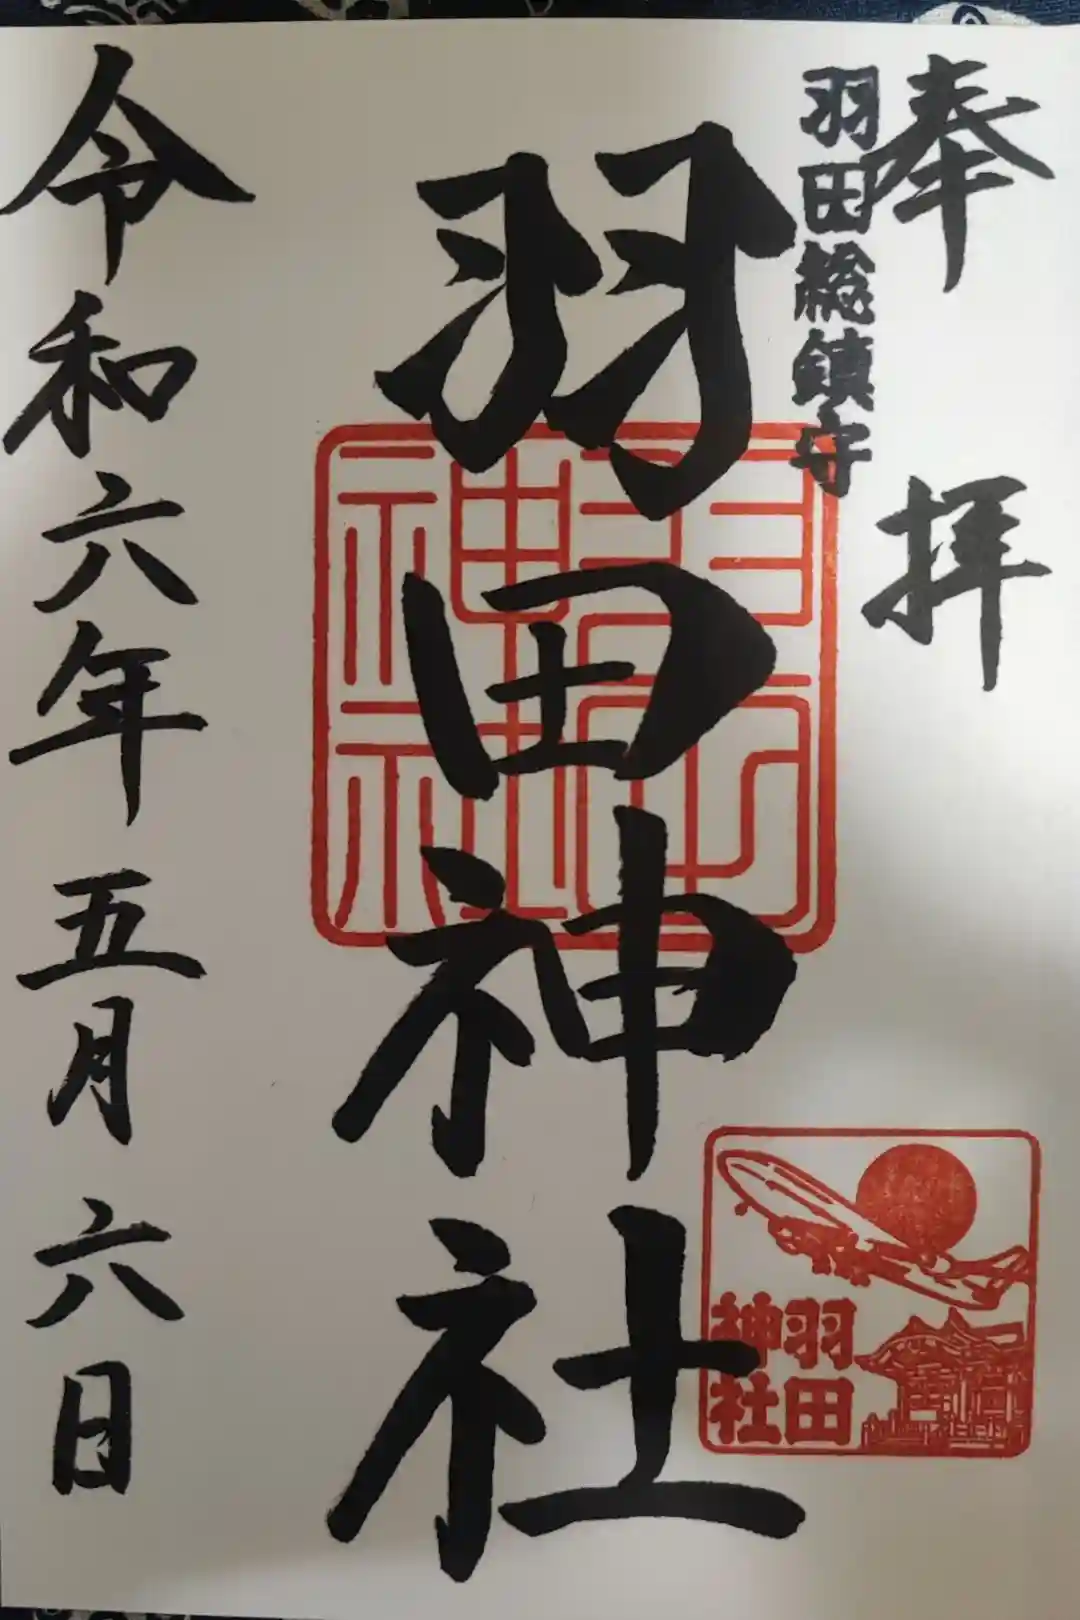 奉拝
羽田総鎮守
羽田神社
令和六年五月六日
羽田
神社
羽田
神社